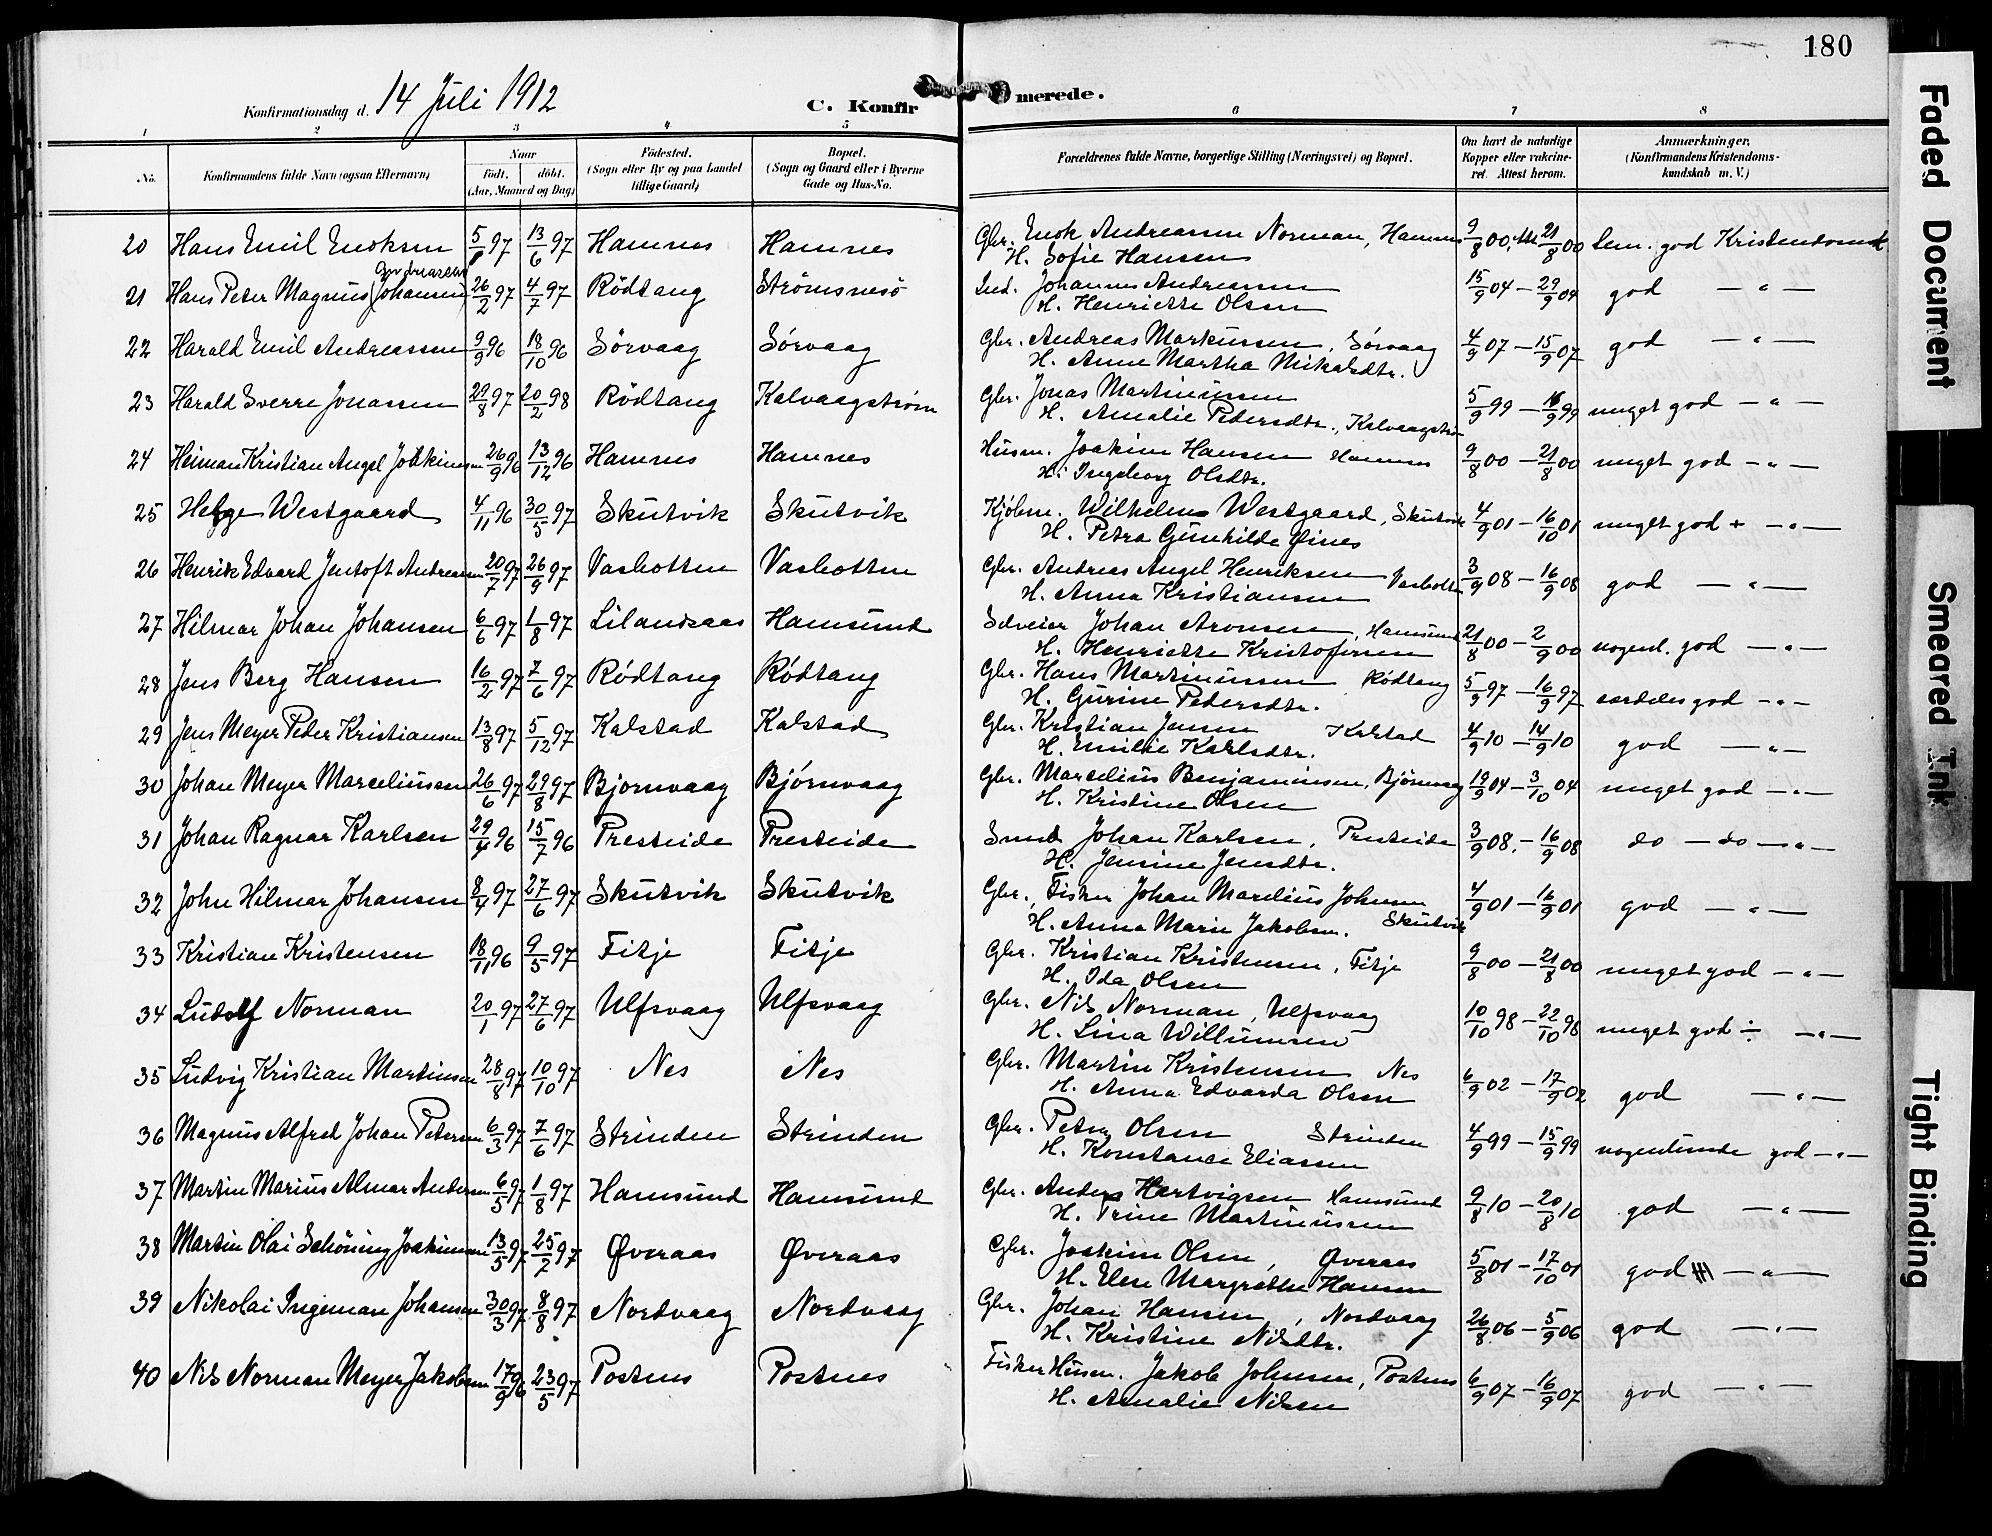 180
Konfirmationsdag d. 14 Juli 1912
C. Konfirmerede.
1 2 3 4 5 6 7 8
No. Konfirmandens fulde Navn (ogsaa Efternavn) Naar født. døbt. (Aar, Maaned og Dag) Fødested. (Sogn eller By og paa Landet tillige Gaard) Bopæl. (Sogn og Gaard eller i Byerne Gade og Hus-No. Forældrenes fulde Navne, borgerlige Stilling (Næringsvei) og Bopæl. Om havt de naturlige Kopper eller vakcineret. Attest herom. Anmærkninger. (Konfirmandens Kristendomskundskab m. V.)
20 Hans Emil Enoksen 97 13/6 97 Hamnes Hamnes Gbr. Enok Andreassen Norman, Hamnes 9/8 00, 21/8 00 god
H. Sofie Hansen
21 Hans Peter Magnus (Johansen) Andreassen 26/2 97 4/7 97 Rødtang Strømsnesø Ind. Johannes Andreassen 15/9 04 – 29/9 04 god – " –
H. Henriette Olsen
22 Harald Emil Andreassen 9/9 96 18/10 96 Sørvaag Sørvaag Gbr. Andreas Markussen, Sørvaag 4/9 07 – 15/9 07 god – " –
H. Anne Martha Mikalsdtr.
23 Harald Sverre Jonassen 29/8 97 20/2 98 Rødtang Kalvaagstrøm Gbr. Jonas Martinussen 5/9 99 – 99 meget god – " –
H. Amalie Pedersdtr., Kalvaagstrøm
24 Heiman Kristian Angel Joakimsen 26/9 96 13/12 96 Hamnes Hamnes Husm. Joakim Hansen Hamnes 9/8 00 – 21/8 00 meget god – " –
H. Ingeborg Olsdtr.
25 Helge Westgaard 4/11 96 30/5 97 Skutvik Skutvik Kjøbm. Wilhelm Westgaard, Skutvik 4/9 01 – 16/10 01 meget god + – " –
H. Petra Gunhilde Fines
26 Henrik Edvard Jentoft Andreassen 20/7 97 26/9 97 Vasbotten Vasbotten Gbr. Andreas Angel Henriksen Vasbotten 3/9 08 – 16/9 08 god – " –
H. Anna Kristiansen
27 Hilmar Johan Johansen 6/6 97 1/8 97 Lilandsaas Hamsund Selveier Johan Aronsen, Hamsund 21/8 00 – 2/9 00 nogenl. god – " –
H. Henriette Kristofersen
28 Jens Berg Hansen 16/2 97 7/6 97 Rødtang Rødtang Gbr. Hans Martinussen Rødtang 5/9 97 – 16/9 97 særdeles god – " –
H. Gurine Pedersdtr.
29 Jens Meyer Peder Kristiansen 13/8 97 5/12 97 Kalstad Kalstad Gbr. Kristian Jensen Kalstad 4/9 10 – 14/9 10 god – " –
H. Emilie Karlsdtr.
30 Johan Meyer Marceliussen 26/6 97 29/8 97 Bjørnvaag Bjørnvaag Gbr. Marcelius Benjaminsen, Bjørnvaag 19/9 04 – 3/10 04 meget god – " –
H. Kristine Olsen
31 Johan Ragnar Karlsen 29/4 96 15/7 96 Presteide Presteide Smed Johan Karlsen, Presteide 3/9 08. – 16/9 08 do – do – " –
H. Jensine Jensdtr.
32 John Hilmar Johansen 8/4 97 27/6 97 Skutvik Skutvik Gbr., Fisker Johan Marelius Johnsen 4/9 01 – 16/9 01 god – " –
H. Anna Marie Jakobsen. Skutvik
33 Kristian Kristensen 18/11 96 9/5 97 Fitje Fitje Gbr. Kristian Kristensen, Fitje 9/8 00 – 21/8 00 meget god – " –
H. Ida Olsen
34 Ludolf Norman 20/1 97 27/6 97 Ulfsvaag Ulfsvaag Gbr. Nils Norman, Ulfsvaag 10/10 98 – 22/10 98 meget god ÷ – " –
H. Lina Willumsen
35 Ludvig Kristian Martinsen 28/8 97 10/10 97 Nes Nes Gbr. Martin Kristensen Nes 6/9 02 – 17/9 02 god – " –
H. Anna Edvarda Olsen
36 Magnus Alfred Johan Petersen 6/3 97 7/6 97 Strinden Strinden Gbr. Peter Olsen Strinden 4/9 99 – 15/9 99 nogenlunde god – " –
H. Konstance Eliassen
37 Martin Marius Almar Andersen 6/5 97 1/8 97 Hamsund Hamsund Gbr. Anders Hartvigsen Hamsund 9/8 10 – 20/8 10 god – " –
H. Trine Martinussen
38 Martin Olai Schöning Joakimsen 13/5 97 25/7 97 Øveraas Øveraas Gbr. Joakim Olsen, Øveraas 5/8 01 – 17/10 01 god – " –
H. Elen Margrethe Hansen
39 Nikolai Ingeman Johansen 30/3 97 8/8 97 Nordvaag Nordvaag Gbr. Johan Hansen, Nordvaag 26/8 06 – 5/9 06 god – " –
H. Kristine Nilsdtr.
40 Nils Norman Meyer Jakobsen 17/9 96 23/5 97 Postnes Postnes Fisker Husm. Jakob Johnsen, Postnes 6/9 07 – 16/9 07 god – " –
H. Amalie Nilsen
Faded Document
Smeared Ink
Tight Binding